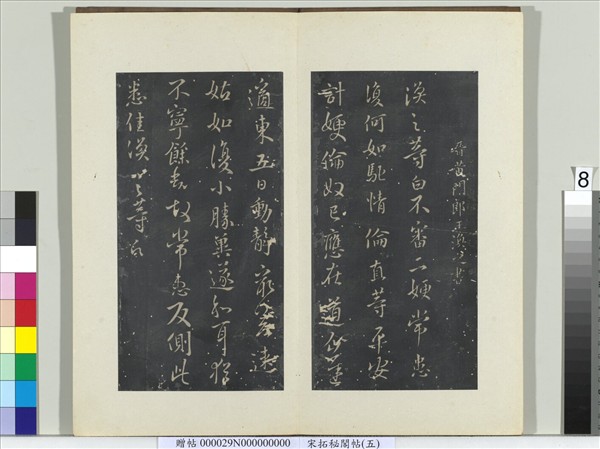 晉黃門郎王渙之書
渙之等白不審二嫂常患
復何如馳情倫直等平安
計嫂倫奴已應在道
適東五日動靜
姑如復小勝冀遂和耳猶
不寧餘去故常患反側此
悉佳渙之等白
8
贈帖 000029N000000000 宋拓秘閣帖(五)